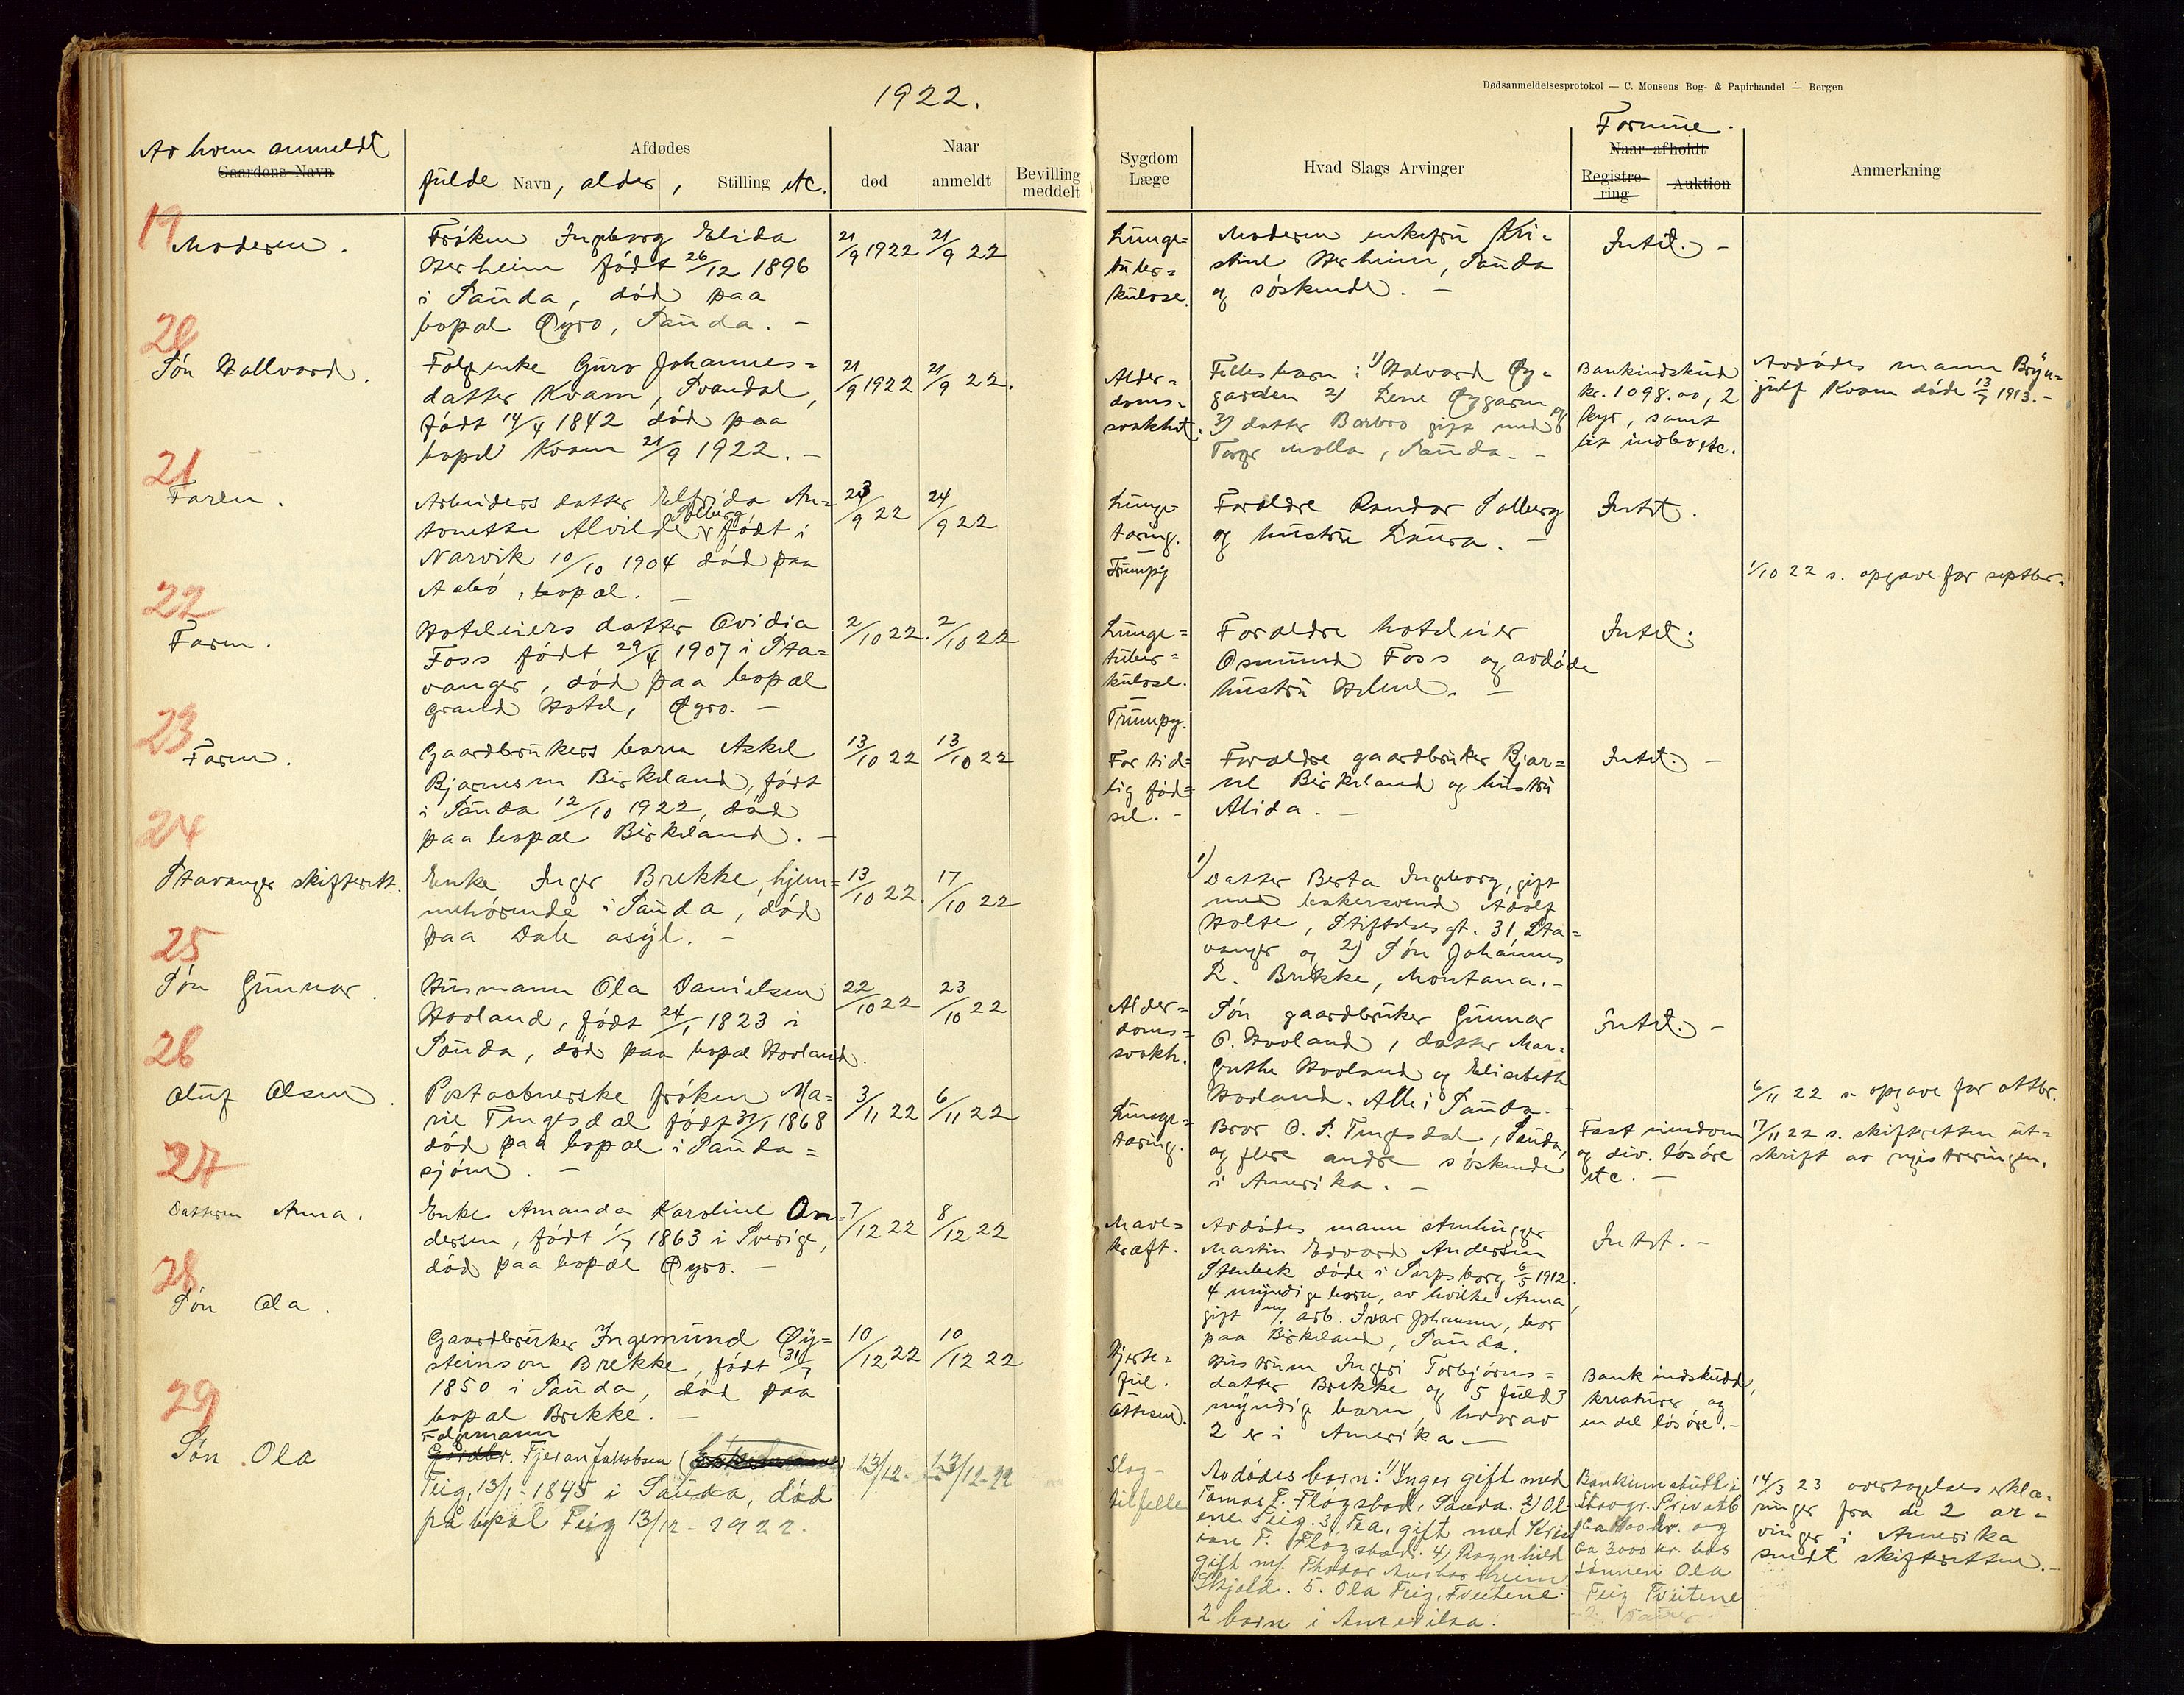 1922.
Dødsanmeldelsesprotokol — C. Monsens Bog- & Papirhandel — Bergen
Av hvem anmeldt
Gaardens Navn
Afdødes
fulde Navn, alder, Stilling etc.
Naar
død
anmeldt
Bevilling meddelt
Sygdom
Læge
Hvad Slags Arvinger
Formue.
Naar afholdt
Registrering
Auktion
Anmerkning
19
Moderen.
Frøken Ingeborg Elida
Herheim født 26/12 1896
i Sauda, død paa
bopæl Øyro, Sauda. –
21/9 1922
21/9 22
Lunge=
tuber=
kulose.
Moderen enkefru Kri-
stine Herheim, Sauda
og søskende. –
Intet. –
20
Søn Hallvard.
Folgenke Guro Johannes=
datter Kvam, Svandal,
født 14/4 1842 død paa
bopel Kvam 21/9 1922. –
21/9 1922
21/9 22.
Alder=
doms-
svakhet.
Fellesbarn: 1) Halvard Øy-
garden 2) Lene Øygarden og
3) datter Barbro gift med
Torger Molla, Sauda. –
Bankindskud
kr. 1098.00, 2
kyr, samt
litt indbo etc.
Avdødes mann Bryn-
julf Kvam døde 13/7 1913. –
21
Faren.
Arbeiders datter Elfrida An=
tonette Alvilde Solberg født i
Narvik 10/10 1904 død paa
Aabø, bopæl. –
23/9 22
24/9 22
Lunge-
tæring.
Trumpy
Foræeldre Randor Solberg
og hustru Laura. –
Intet.
1/10 22 s. opgave for septbr.
22
Faren.
Hoteleiers datter Ovidia
Foss født 29/4 1907 i Sta=
vanger, død paa bopæl
Grand Hotel, Øyro. –
2/10 22.
2/10 22
Lunge=
tuber=
kulose.
Trumpy.
Foræeldre hoteleier
Osmund Foss og avdøde
hustru Helene. –
Intet.
23
Faren.
Gaardbrukers barn Askel
Bjarnesen Birkeland, født
i Sauda 12/10 1922, død
paa bopæl Birkeland. –
13/10 22
13/10 22
For tid=
lig fød=
sel. –
Foræeldre gaardbruker Bjar=
ne Birkeland og hustru
Alida. –
Intet. –
24
Stavanger skifterett.
Enke Inger Brekke, hjem=
mehørende i Sauda, død
paa Dale asyl. –
13/10 22.
17/10 22
1) Datter Berta Ingeborg, gift
med bakersvend Adolf
Holte, Stiftelsesgt. 31 Sta=
vanger og 2) Søn Johannes
L. Brekke, Montana. –
25
Søn Gunnar.
Husmann Ola Danielsen
Hovland, født 24/1 1823 i
Sauda, død paa bopæl Hovland.
22/10 22
23/10 22
Alder=
doms=
svakh.
Søn gaardbruker Gunnar
O. Hovland, datter Mar=
grethe Hovland og Elisabeth
Hovland. Alle i Sauda. –
Intet. –
26
Oluf Olsen.
Postaabnerske frøken Ma-
rie Tengesdal født 31/1 1868
død paa bopæl i Sauda=
sjøen. –
3/11 22
6/11 22
Lunge=
tæring.
Bror O. S. Tengesdal, Sauda,
og flere andre søskende
i Amerika. –
Fast eiendom
og div. løsøre
etc. –
6/11 22 s. opgave for oktbr.
17/11 22 s. skifteretten ut=
skrift av registreringen.
27
Datteren Anna.
Enke Amanda Karoline An=
dersen, født 1/7 1863 i Sverige,
død paa bopæl Øyro. –
7/12 22
8/12 22
Mave=
kræft.
Avdødes mann stenhugger
Martin Edvard Andersen
Stenbek døde i Sarpsborg 6/5 1912.
4 myndige børn, av hvilke Anna,
gift m/ arb. Ivar Johansen, bor
paa Birkeland, Sauda.
Intet. –
28
Søn Ola.
Gaardbruker Ingemund Øy=
steinson Brekke, født 31/7
1850 i Sauda, død paa
bopæl Brekke. –
10/12 22
10/12 22
Hjerte-
feil.
Ottesen.
Hustruen Ingeri Torbjørns=
datter Brekke og 5 fuld
myndig barn, hvorav
2 er i Amerika. –
Bankindskudd,
kreaturer og
en del løsøre. –
29
Søn Ola
Folgemann
Gardbr. Tjeran Jakobsen
Feig, 13/1 - 1845 i Sauda, død
på bopæl Feig 13/12 - 1922.
13/12 -
13/12 - 22
Slag-
tilfelle
Avdødes barn: 1) Inger gift med
Tomas T. Fløgstad, Sauda. 2) Ol-
ene Feig. 3) Tea, gift med Kris
ian T. Fløgstad. 4) Ragnhild
gift m/.
Skjold. 5. Ola Feig, Tveitene.
2 barn i Amerika.
Bankinnskudd i
Stavgr. Privatb
og
ca 3000 kr. hos
sønnen Ola
Feig Tveitene
14/3 23 overtagelseserklæ-
ringer fra de 2 ar-
vinger i Amerika
sendt skifteretten. –